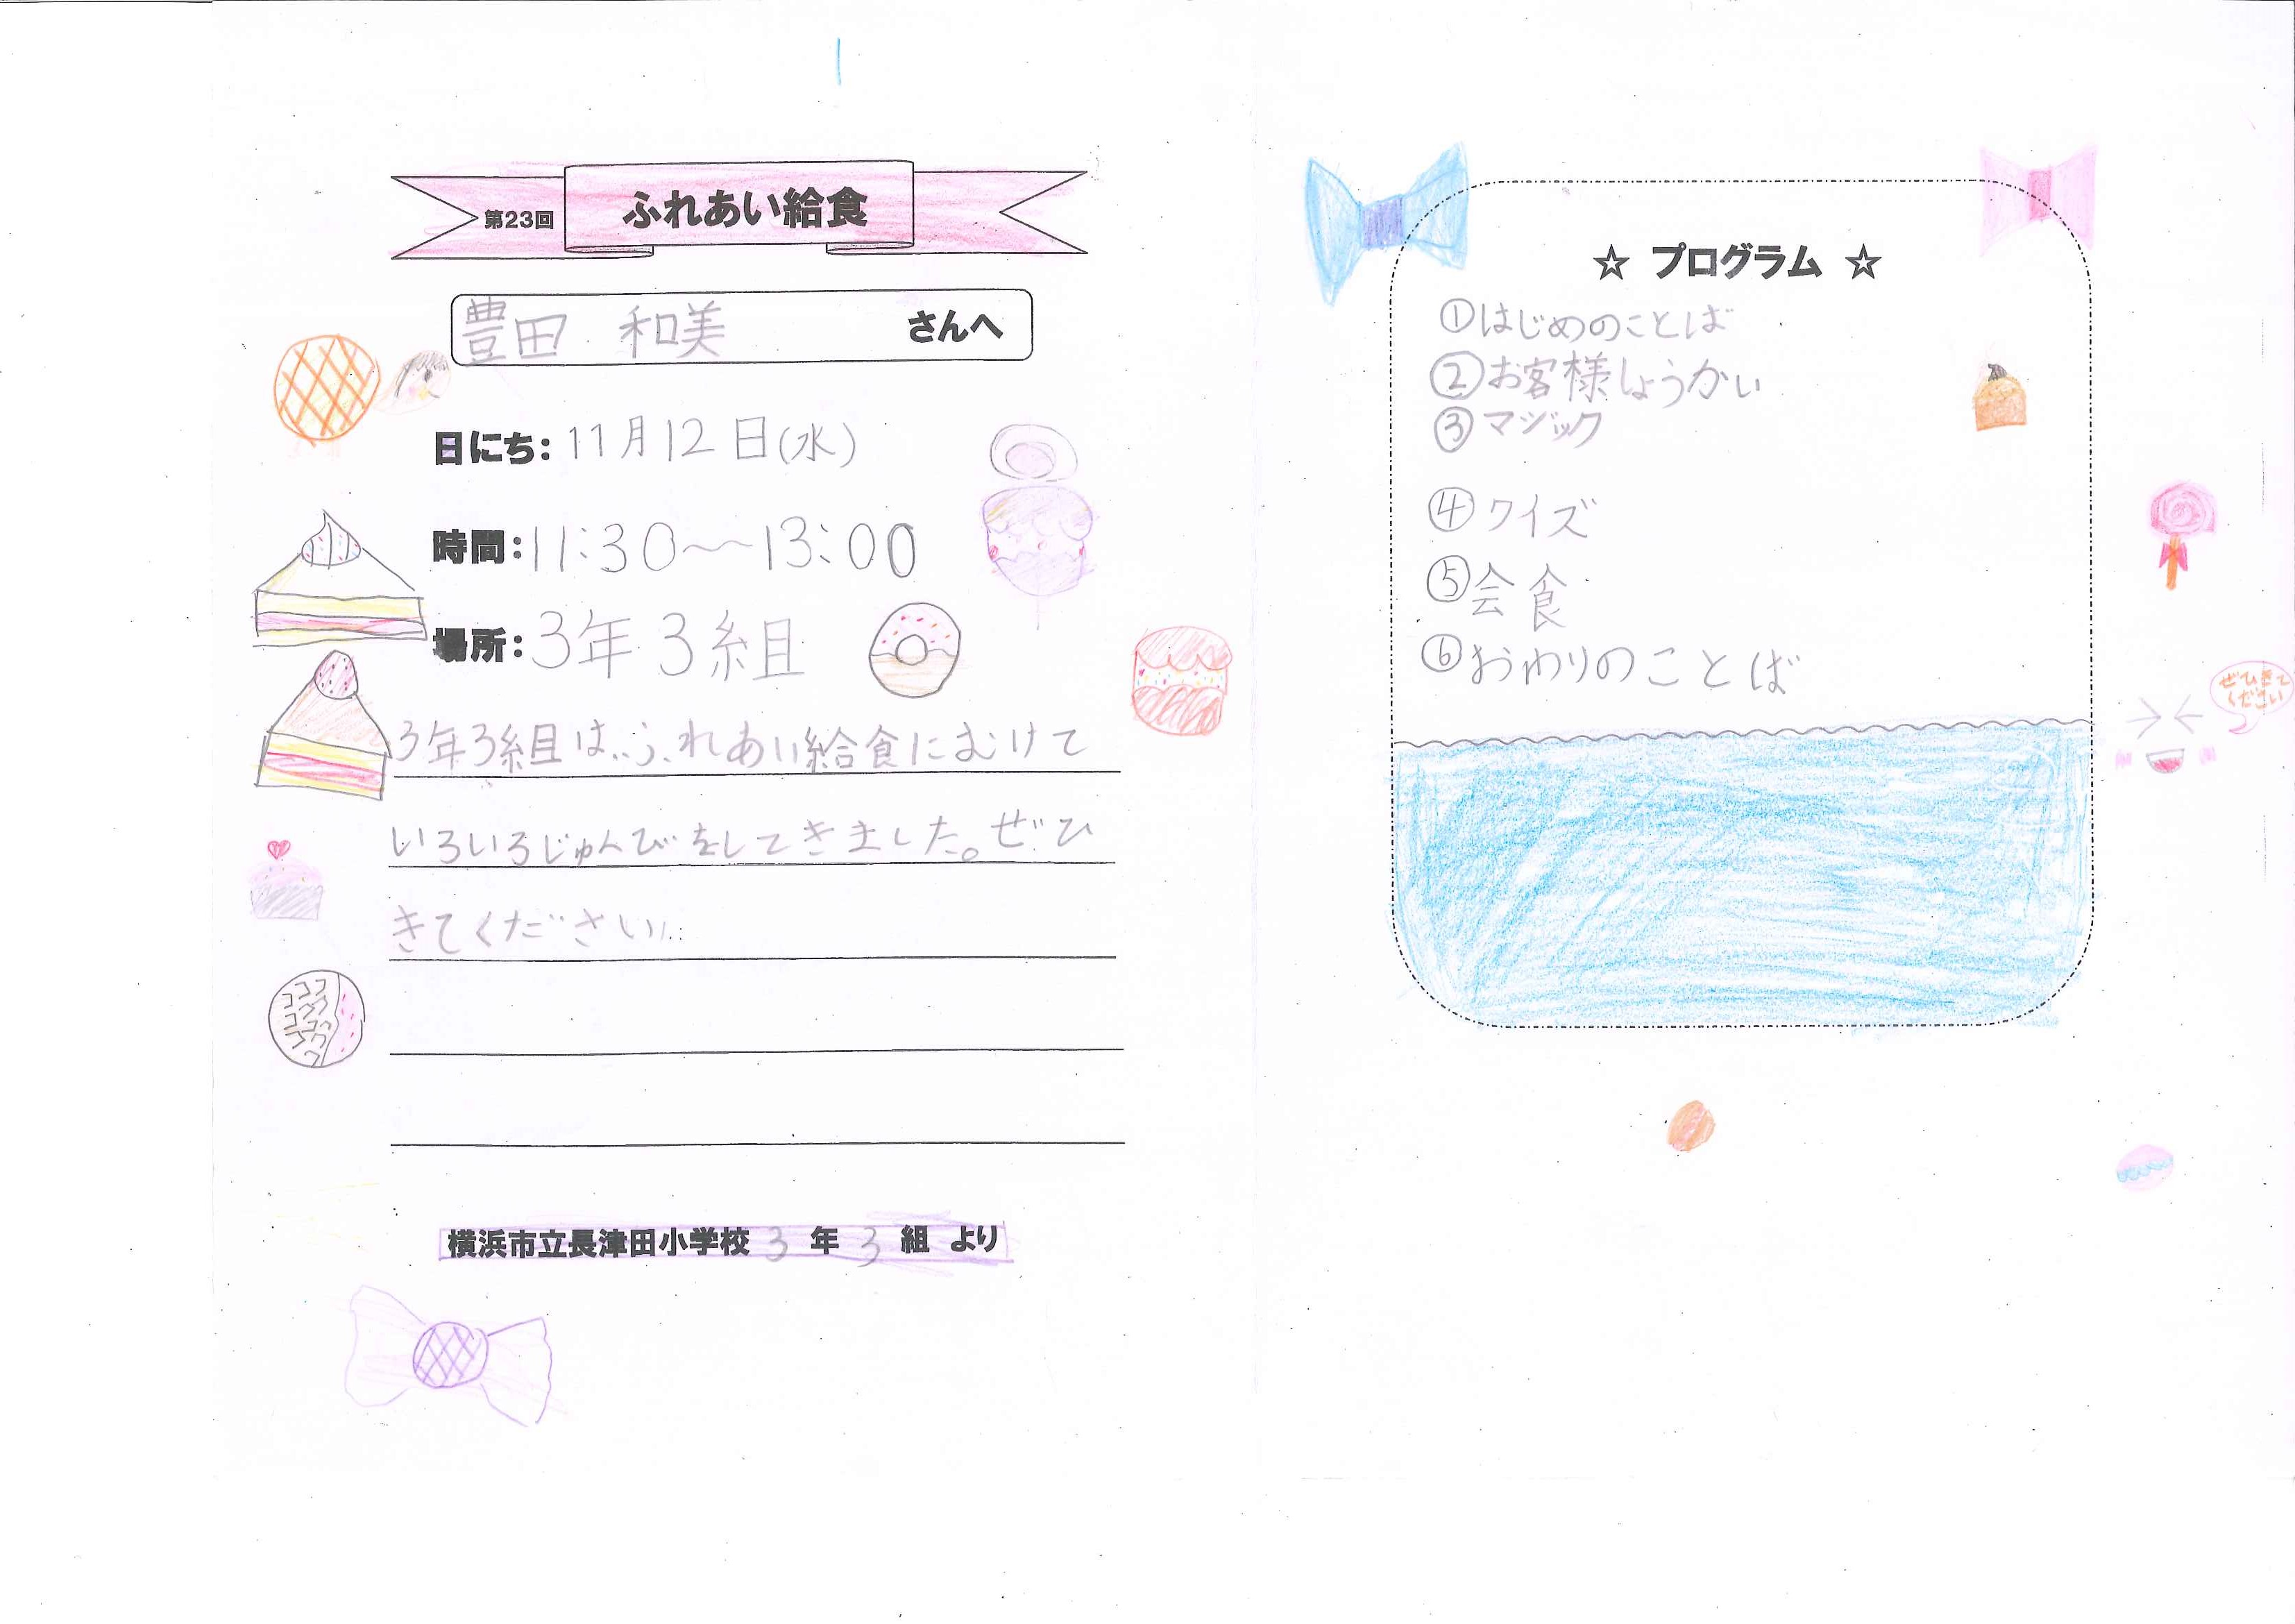 第23回 ふれあい給食
豊田 和美 さんへ
日にち：11月12日(水)
時間：11:30〜13:00
場所：3年3組
3年3組は、ふれあい給食にむけて
いろいろじゅんびをしてきました。ぜひ
きてください!!
横浜市立長津田小学校 3 年 3 組 より
☆ プログラム ☆
①はじめのことば
②お客様しょうかい
③マジック
④クイズ
⑤会食
⑥おわりのことば
ぜひきて
ください